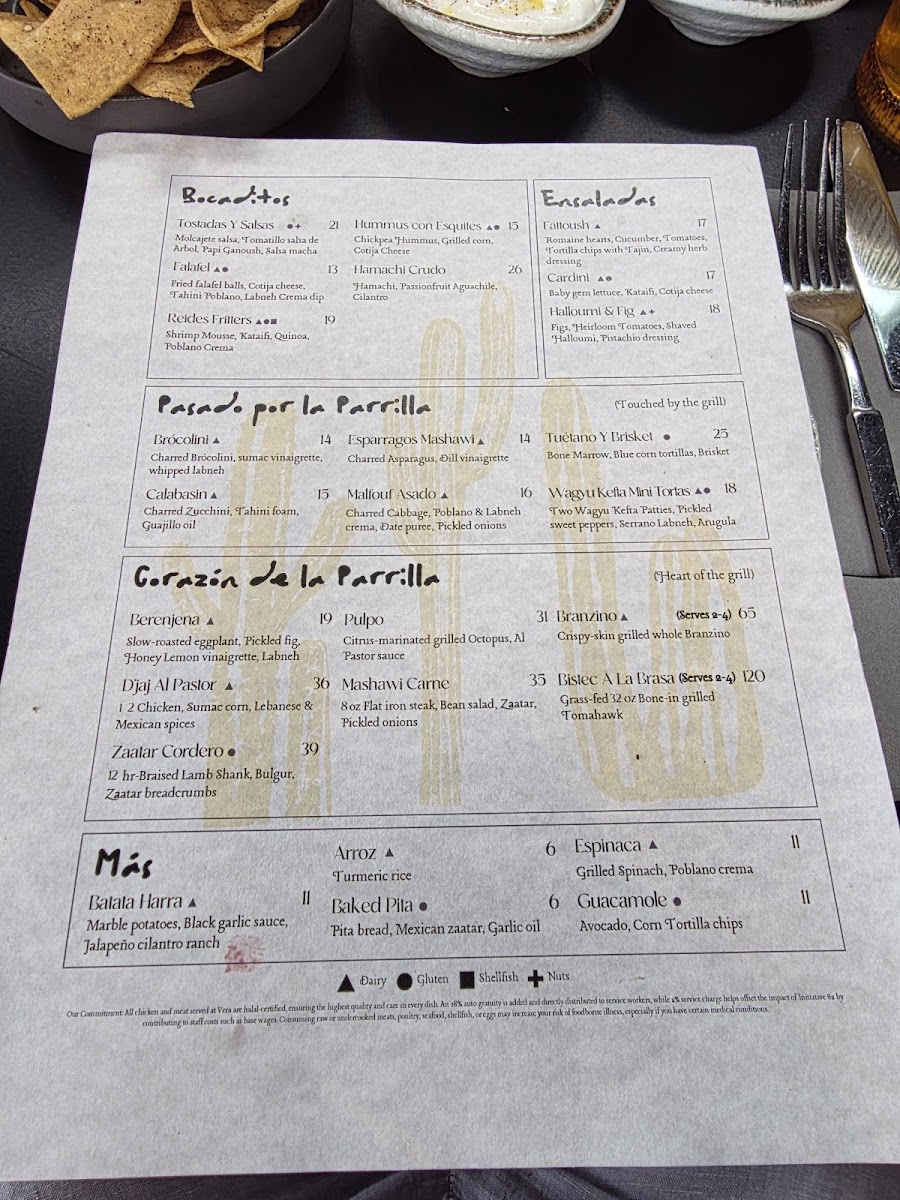 Bocaditos
Tostadas Y Salsas ●+ 21
Molcajete salsa, Tomatillo salsa de
Arbol, Papi Ganoush, Salsa macha
Falafel ▲● 13
Fried falafel balls, Cotija cheese,
Tahini Poblano, Labneh Crema dip
Reides Fritters ▲●■ 19
Shrimp Mousse, Kataifi, Quinoa,
Poblano Crema
Hummus con Esquites ▲● 15
Chickpea Hummus, Grilled corn,
Cotija Cheese
Hamachi Crudo 26
Hamachi, Passionfruit Aguachile,
Cilantro
Ensaladas
Fattoush ▲ 17
Romaine hearts, Cucumber, Tomatoes,
Tortilla chips with Tajin, Creamy herb
dressing
Cardini ▲● 17
Baby gem lettuce, Kataifi, Cotija cheese
Halloumi & Fig ▲+ 18
Figs, Heirloom Tomatoes, Shaved
Halloumi, Pistachio dressing
Pasado por la Parrilla
(Touched by the grill)
Brócolini ▲ 14
Charred Brócolini, sumac vinaigrette,
whipped labneh
Calabasin ▲ 15
Charred Zucchini, Tahini foam,
Guajillo oil
Esparragos Mashawi ▲ 14
Charred Asparagus, Dill vinaigrette
Malfouf Asado ▲ 16
Charred Cabbage, Poblano & Labneh
crema, Date puree, Pickled onions
Tuétano Y Brisket ● 25
Bone Marrow, Blue corn tortillas, Brisket
Wagyu Kefta Mini Tortas ▲● 18
Two Wagyu Kefta Patties, Pickled
sweet peppers, Serrano Labneh, Arugula
Corazón de la Parrilla
(Heart of the grill)
Berenjena ▲ 19
Slow-roasted eggplant, Pickled fig,
Honey Lemon vinaigrette, Labneh
D'jaj Al Pastor ▲ 36
1 2 Chicken, Sumac corn, Lebanese &
Mexican spices
Zaatar Cordero ● 39
12 hr-Braised Lamb Shank, Bulgur,
Zaatar breadcrumbs
Pulpo 31
Citrus-marinated grilled Octopus, Al
Pastor sauce
Mashawi Carne 35
8 oz Flat iron steak, Bean salad, Zaatar,
Pickled onions
Branzino ▲ (Serves 2-4) 65
Crispy-skin grilled whole Branzino
Bistec A La Brasa (Serves 2-4) 120
Grass-fed 32 oz Bone-in grilled
Tomahawk
Más
Batata Harra ▲ 11
Marble potatoes, Black garlic sauce,
Jalapeño cilantro ranch
Arroz ▲ 6
Turmeric rice
Baked Pita ● 6
Pita bread, Mexican zaatar, Garlic oil
Espinaca ▲ 11
Grilled Spinach, Poblano crema
Guacamole ● 11
Avocado, Corn Tortilla chips
▲ Dairy ● Gluten ■ Shellfish + Nuts
Our Commitment: All chicken and meat served at Vera are halal-certified, ensuring the highest quality and care in every dish. An 18% auto gratuity is added and directly distributed to service workers, while 2% service charge helps offset the impact of Initiative 82 by
contributing to staff costs such as base wages. Consuming raw or undercooked meats, poultry, seafood, shellfish, or eggs may increase your risk of foodborne illness, especially if you have certain medical conditions.